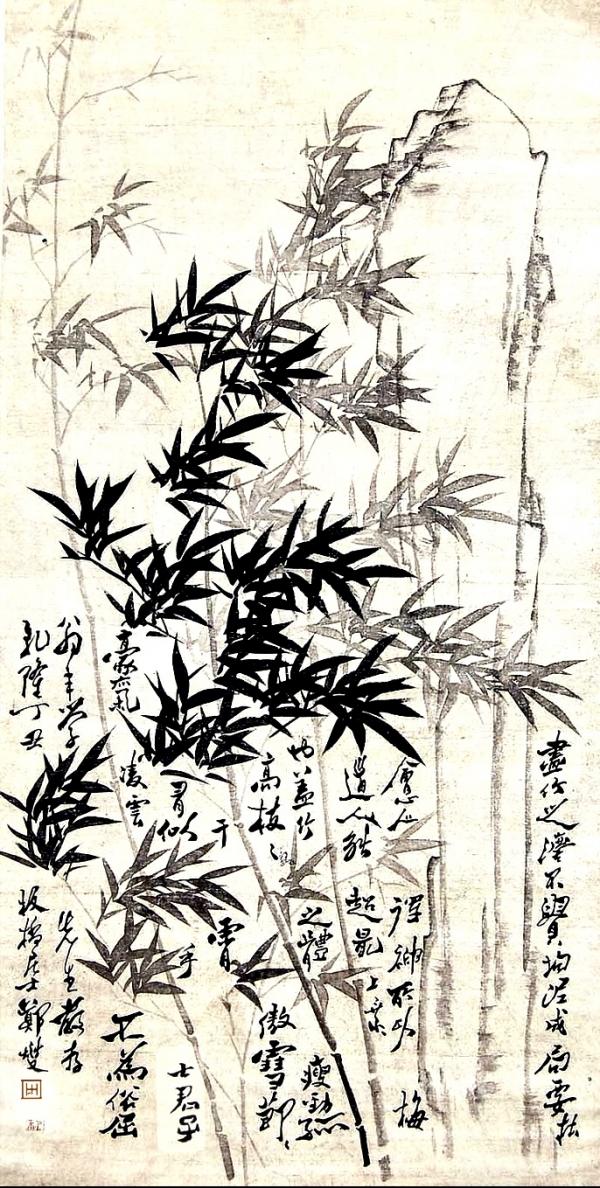 畫竹之法不貴拘泥成局要在
會心人得神所以梅
道人能超最上乘
也蓋竹之體瘦勁孤
高枝枝傲雪節節
干霄
有似乎士君子
豪氣凌雲不為俗屈
翁年學先生教存
乾隆丁丑板橋居士鄭燮